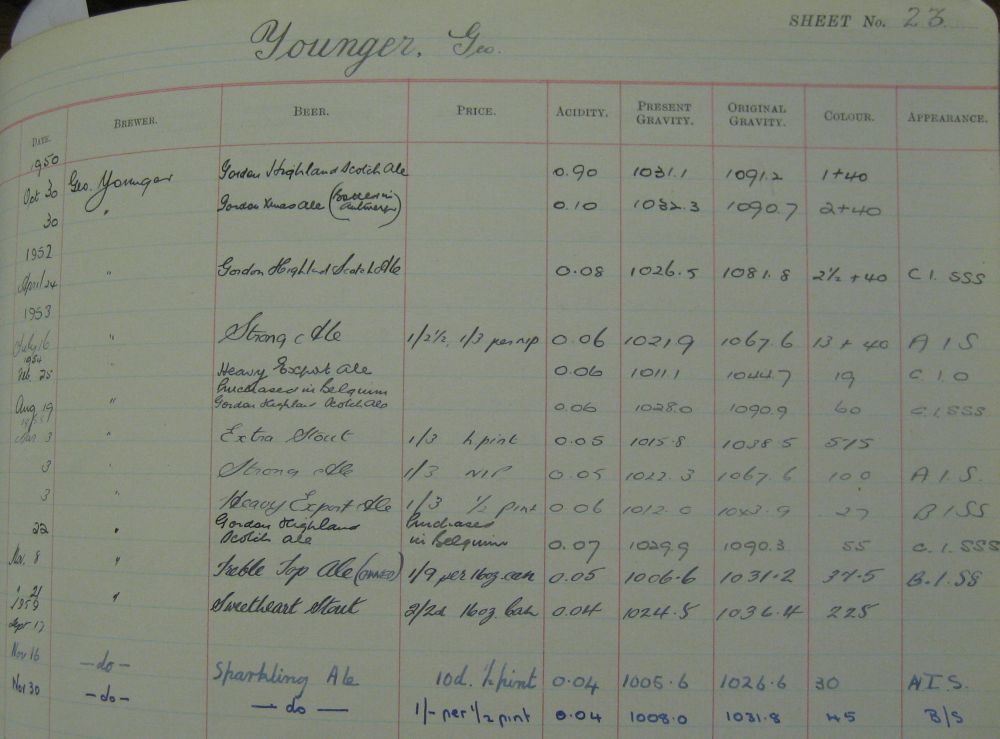 SHEET No. 23
Younger, Geo.
DATE. BREWER. BEER. PRICE. ACIDITY. PRESENT GRAVITY. ORIGINAL GRAVITY. COLOUR. APPEARANCE.
1950
Oct 30 Geo. Younger Gordon Highland Scotch Ale 0.90 1031.1 1091.2 1+40
30 " Gordon Xmas Ale (Bottled in Antwerp) 0.10 1032.3 1090.7 2+40
1952
April 24 " Gordon Highland Scotch Ale 0.08 1026.5 1081.8 2½+40 C.1. SSS
1953
July 16 " Strong Ale 1/2½, 1/3 per nip 0.06 1021.9 1067.6 13+40 A 1 S
1954
Feb. 25 " Heavy Export Ale 0.06 1011.1 1044.7 19 C 1.0
Purchased in Belguim
Aug 19 " Gordon Highland Scotch Ale 0.06 1028.0 1090.9 60 C.1.SSS
3 " Extra Stout 1/3 ½ pint 0.05 1015.8 1038.5 575
3 Strong Ale 1/3 NIP 0.05 1022.3 1067.6 100 A.1.S.
3 " Heavy Export Ale 1/3 ½ pint 0.06 1012.0 1043.9 27 B1SS
22 " Gordon Highland Scotch Ale Purchased in Belguim 0.07 1029.9 1090.3 55 C.1.SSS
Nov. 8 " Treble Top Ale (CANNED) 1/9 per 16oz. can 0.05 1006.6 1031.2 37.5 B.1.SS
" 21 " Sweetheart Stout 2/2d 16oz. Can 0.04 1024.5 1036.4 225
1959
Sept 17
Nov 16 —do— Sparkling Ale 10d. ½ pint 0.04 1005.6 1026.6 30 A1.S.
Nov 30 —do— —do— 1/- per ½ pint 0.04 1008.0 1031.8 45 B/S